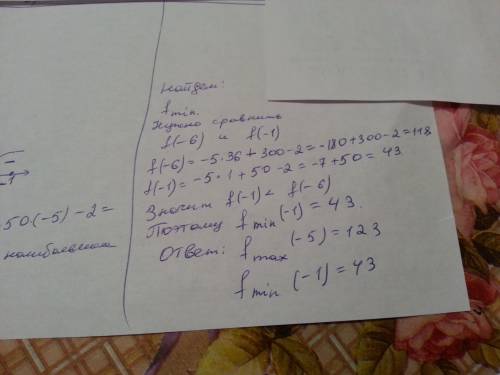 50·(-5)-2=
наибольшая
Найдем:
f min.
Нужно сравнить
f(-6) и f(-1)
f(-6) = -5·36 + 300 - 2 = -180 + 300 - 2 = 118
f(-1) = -5·1 + 50 - 2 = -7 + 50 = 43
Значит f(-1) < f(-6)
Поэтому f min (-1) = 43.
Ответ: f max (-5) = 123
f min (-1) = 43